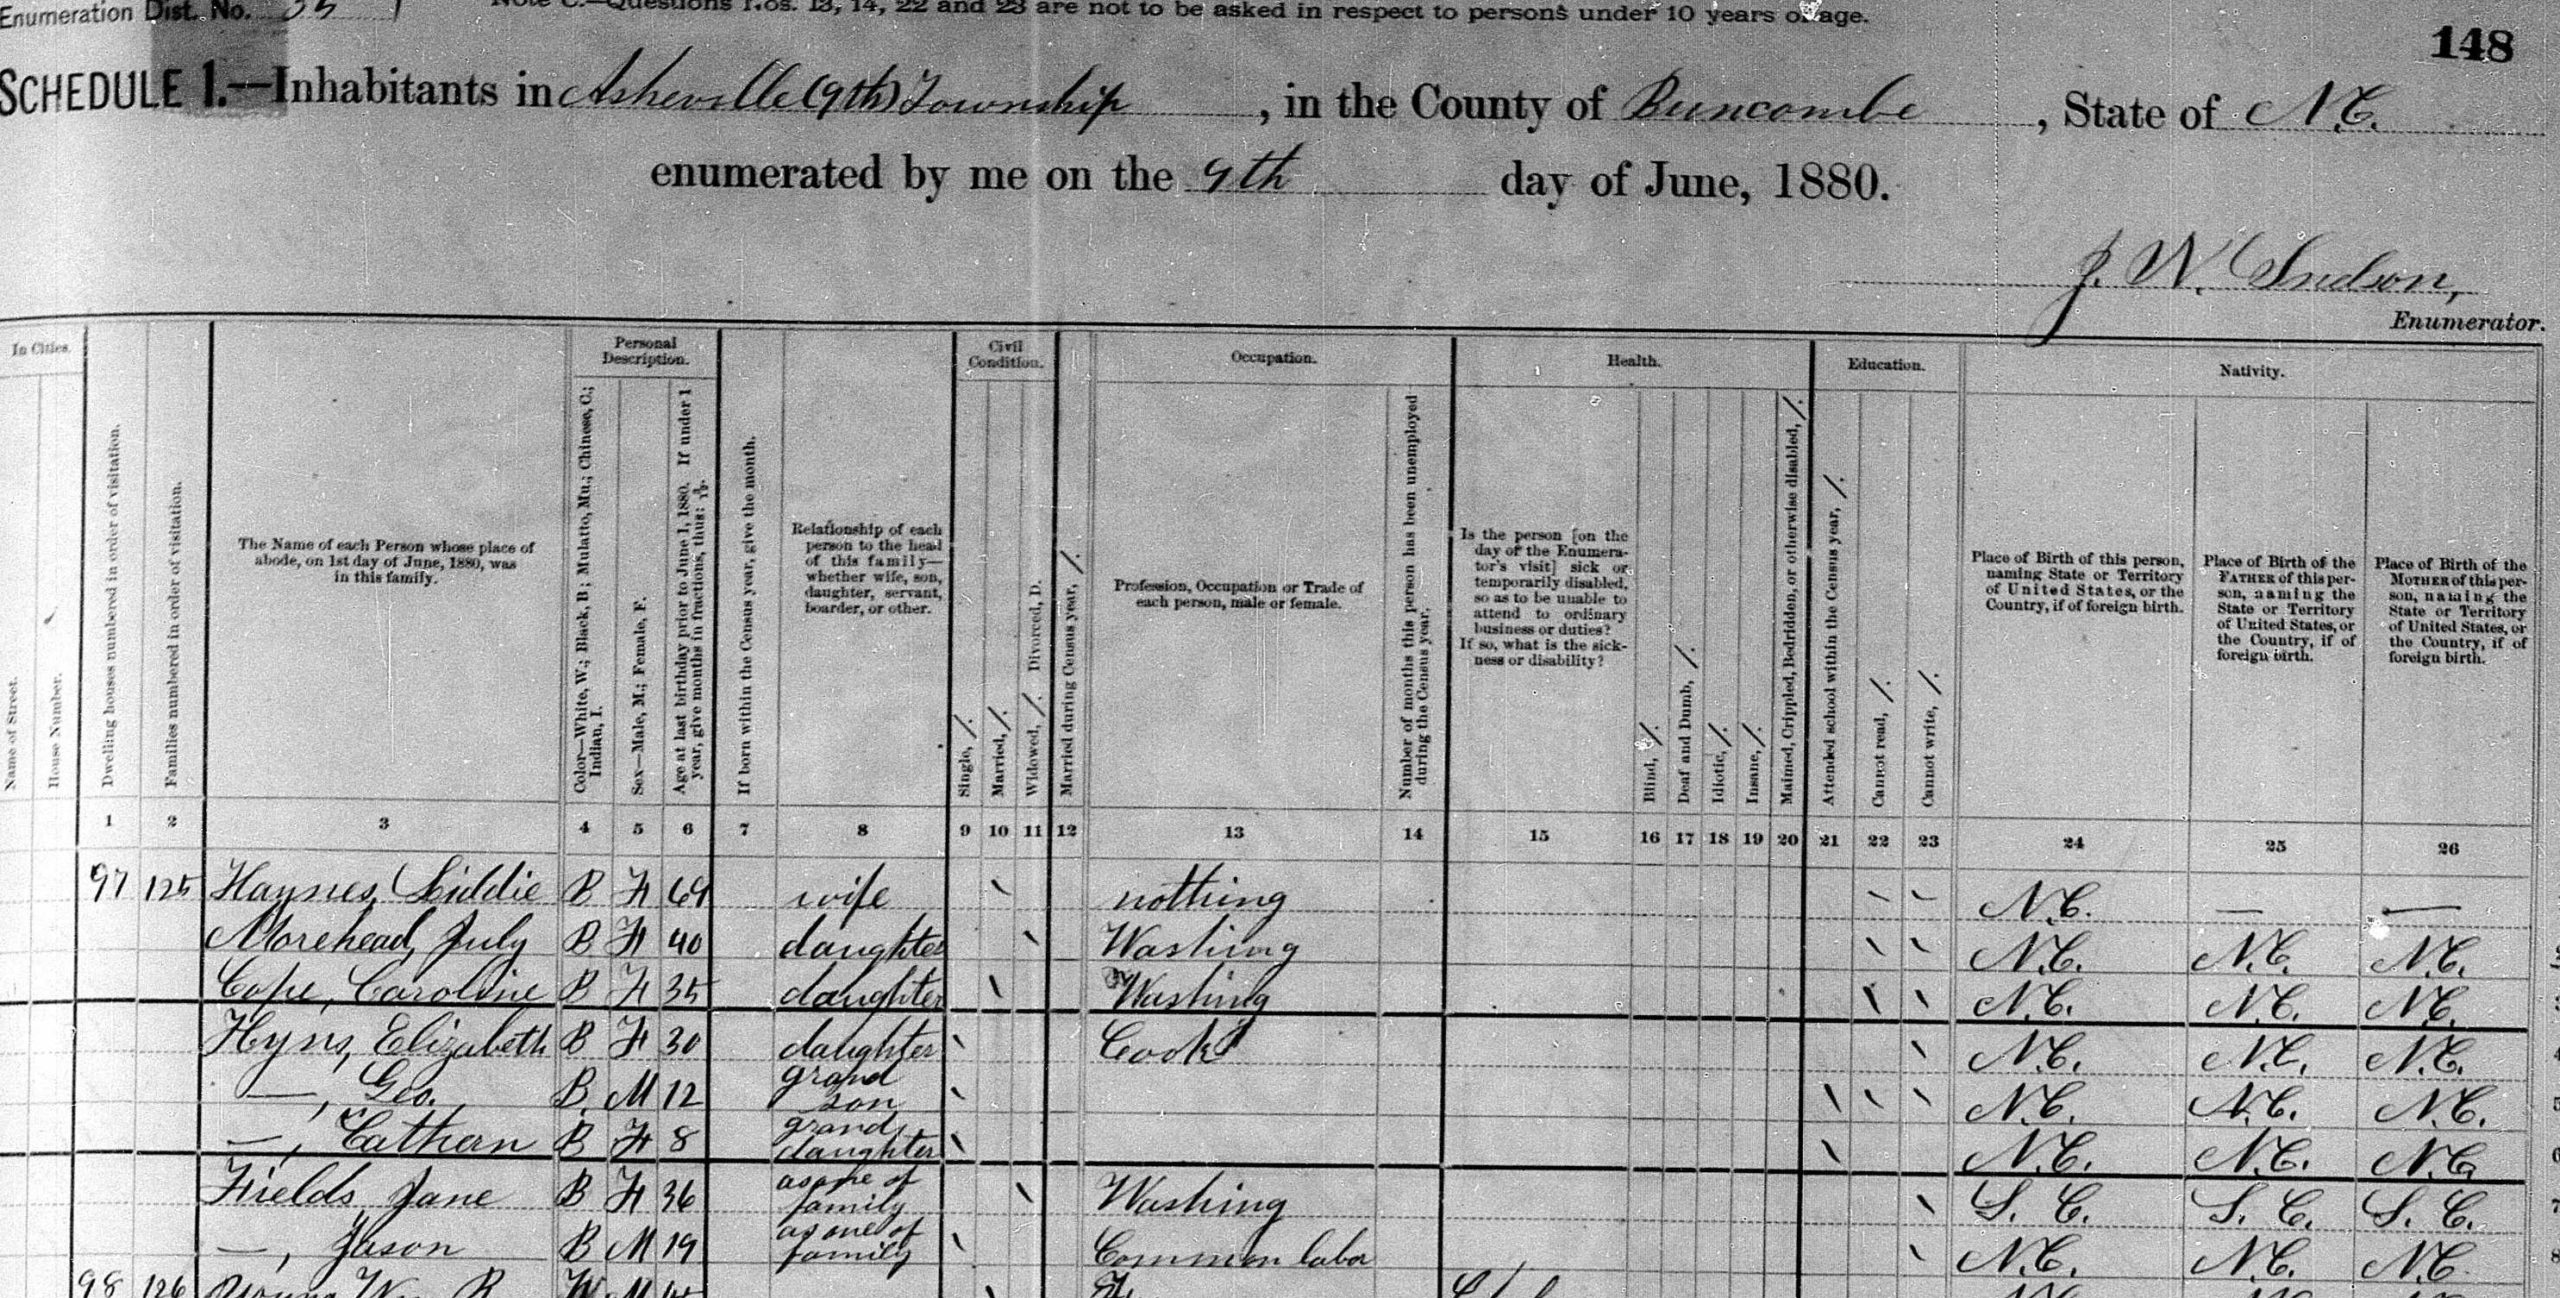 Enumeration Dist. No. 35
Note C.—Questions Nos. 13, 14, 22 and 23 are not to be asked in respect to persons under 10 years of age.
148
SCHEDULE 1.—Inhabitants in Asheville (9th) Township, in the County of Buncombe, State of N.C.
enumerated by me on the 9th day of June, 1880.
J. W.
Enumerator.
In Cities.
Name of Street.
House Number.
Dwelling houses numbered in order of visitation.
Families numbered in order of visitation.
The Name of each Person whose place of
abode, on 1st day of June, 1880, was
in this family.
Personal
Description.
Color—White, W.; Black, B; Mulatto, Mu.; Chinese, C.;
Indian, I.
Sex—Male, M.; Female, F.
Age at last birthday prior to June 1, 1880. If under 1
year, give months in fractions, thus: 3/12.
If born within the Census year, give the month.
Relationship of each
person to the head
of this family—
whether wife, son,
daughter, servant,
boarder, or other.
Civil
Condition.
Single, /.
Married, /.
Widowed, /. Divorced, D.
Married during Census year, /.
Occupation.
Profession, Occupation or Trade of
each person, male or female.
Number of months this person has been unemployed
during the Census year.
Health.
Is the person [on the
day of the Enumera-
tor's visit] sick or
temporarily disabled,
so as to be unable to
attend to ordinary
business or duties?
If so, what is the sick-
ness or disability?
Blind, /.
Deaf and Dumb, /.
Idiotic, /.
Insane, /.
Maimed, Crippled, Bedridden, or otherwise disabled, /.
Education.
Attended school within the Census year, /.
Cannot read, /.
Cannot write, /.
Nativity.
Place of Birth of this person,
naming State or Territory
of United States, or the
Country, if of foreign birth.
Place of Birth of the
FATHER of this per-
son, naming the
State or Territory
of United States, or
the Country, if of
foreign birth.
Place of Birth of the
MOTHER of this per-
son, naming the
State or Territory
of United States, or
the Country, if of
foreign birth.
1 2 3 4 5 6 7 8 9 10 11 12 13 14 15 16 17 18 19 20 21 22 23 24 25 26
97 125 Haynes, Liddie B F 69 wife / nothing / / N.C. — —
Morehead, July B F 40 daughter / Washing / / N.C. N.C. N.C.
Cope, Caroline B F 35 daughter / Washing / / N.C. N.C. N.C.
Hyns, Elizabeth B F 30 daughter / Cook / N.C. N.C. N.C.
—, Geo. B. M 12 grand son / / / / N.C. N.C. N.C.
—, Cathern B F 8 grand daughter / / N.C. N.C. N.C.
Fields, Jane B F 36 as one of family / Washing / S.C. S.C. S.C.
—, Jason B M 19 as one of family / Common labor / N.C. N.C. N.C.
98 126 W M